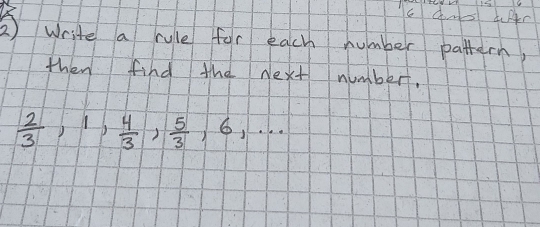 2) Write a rule for each number pattern,
then find the next number.
2/3, 1, 4/3, 5/3, 6, ...